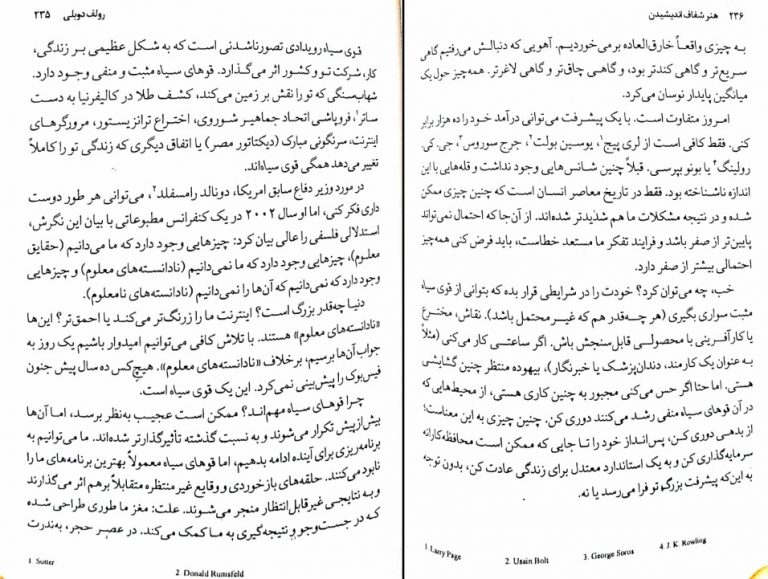 رولف دوبلی ۲۳۵
قوی سیاه رویدادی تصورناشدنی است که به شکل عظیمی بر زندگی،
کار، شرکت تو و کشور اثر می‌گذارد. قوهای سیاه مثبت و منفی وجود دارد.
شهاب‌سنگی که تو را نقش بر زمین می‌کند، کشف طلا در کالیفرنیا به دست
ساتر۱، فروپاشی اتحاد جماهیر شوروی، اختراع ترانزیستور، مرورگرهای
اینترنت، سرنگونی مبارک (دیکتاتور مصر) یا اتفاق دیگری که زندگی تو را کاملاً
تغییر می‌دهد همگی قوی سیاه‌اند.
در مورد وزیر دفاع سابق امریکا، دونالد رامسفلد۲، می‌توانی هر طور دوست
داری فکر کنی، اما او سال ۲۰۰۲ در یک کنفرانس مطبوعاتی با بیان این نگرش،
استدلالی فلسفی را عالی بیان کرد: چیزهایی وجود دارد که ما می‌دانیم (حقایق
معلوم)، چیزهایی وجود دارد که ما نمی‌دانیم (نادانسته‌های معلوم) و چیزهایی
وجود دارد که نمی‌دانیم که آن‌ها را نمی‌دانیم (نادانسته‌های نامعلوم).
دنیا چه‌قدر بزرگ است؟ اینترنت ما را زرنگ‌تر می‌کند یا احمق‌تر؟ این‌ها
«نادانسته‌های معلوم» هستند. با تلاش کافی می‌توانیم امیدوار باشیم یک روز به
جواب آن‌ها برسیم، برخلاف «نادانسته‌های معلوم». هیچ‌کس ده سال پیش جنون
فیس‌بوک را پیش‌بینی نمی‌کرد. این یک قوی سیاه است.
چرا قوهای سیاه مهم‌اند؟ ممکن است عجیب به‌نظر برسد، اما آن‌ها
بیش‌ازپیش تکرار می‌شوند و به نسبت گذشته تأثیرگذارتر شده‌اند. ما می‌توانیم به
برنامه‌ریزی برای آینده ادامه بدهیم، اما قوهای سیاه معمولاً بهترین برنامه‌های ما را
نابود می‌کنند. حلقه‌های بازخوردی و وقایع غیرمنتظره متقابلاً برهم اثر می‌گذارند
و به نتایجی غیرقابل‌انتظار منجر می‌شوند. علت: مغز ما طوری طراحی شده
که در جست‌وجو و نتیجه‌گیری به ما کمک می‌کند. در عصر حجر، به‌ندرت
1. Sutter
2. Donald Rumsfeld
۲۳۶ هنر شفاف اندیشیدن
به چیزی واقعاً خارق‌العاده برمی‌خوردیم. آهویی که دنبالش می‌رفتیم گاهی
سریع‌تر و گاهی کندتر بود، و گاهی چاق‌تر و گاهی لاغرتر. همه‌چیز حول یک
میانگین پایدار نوسان می‌کرد.
امروز متفاوت است. با یک پیشرفت می‌توانی درآمد خود را ده هزار برابر
کنی. فقط کافی است از لری پیج۱، یوسین بولت۲، جرج سوروس۳، جی.کی.
رولینگ۴ یا بونو بپرسی. قبلاً چنین شانس‌هایی وجود نداشت و قله‌هایی با این
اندازه ناشناخته بود. فقط در تاریخ معاصر انسان است که چنین چیزی ممکن
شده و در نتیجه مشکلات ما هم شدیدتر شده‌اند. از آن‌جا که احتمال نمی‌تواند
پایین‌تر از صفر باشد و فرایند تفکر ما مستعد خطاست، باید فرض کنی همه‌چیز
احتمالی بیشتر از صفر دارد.
خب، چه می‌توان کرد؟ خودت را در شرایطی قرار بده که بتوانی از قوی سیاه
مثبت سواری بگیری (هر چه‌قدر هم که غیرمحتمل باشد). نقاش، مخترع
یا کارآفرینی با محصولی قابل‌سنجش باش. اگر ساعتی کار می‌کنی (مثلاً
به عنوان یک کارمند، دندان‌پزشک یا خبرنگار)، بیهوده منتظر چنین گشایشی
هستی. اما حتا اگر حس می‌کنی مجبور به چنین کاری هستی، از محیط‌هایی که
در آن قوهای سیاه منفی رشد می‌کنند دوری کن. چنین چیزی به این معناست؛
از بدهی دوری کن، پس‌انداز خود را تا جایی که ممکن است محافظه‌کارانه
سرمایه‌گذاری کن و به یک استاندارد معتدل برای زندگی عادت کن، بدون توجه
به این‌که پیشرفت بزرگ تو فرا می‌رسد یا نه.
1. Larry Page
2. Usain Bolt
3. George Soros
4. J. K. Rowling